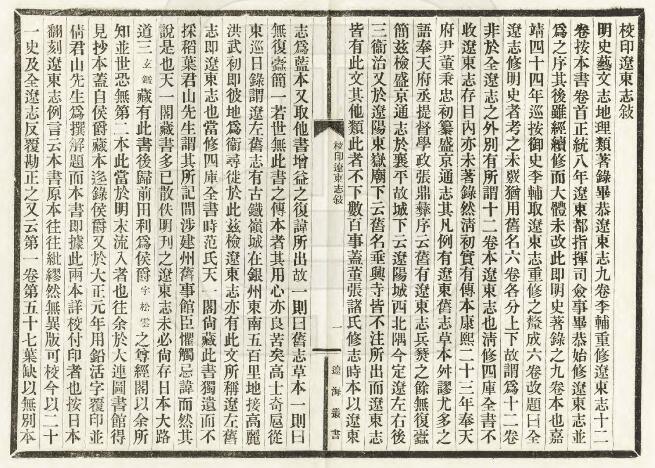 校印遼東志敘
明史藝文志地理類著錄畢恭遼東志九卷李輔重修遼東志十二
卷按本書卷首正統八年遼東都指揮司僉事畢恭始修遼東志並
為之序其後雖經續修而大體未改此即明史著錄之九卷本也嘉
靖四十四年巡按御史李輔取遼東志重修之釐成六卷改題曰全
遼志修明史者考之未覈猶用舊名六卷各分上下故謂為十二卷
非於全遼志之外別有所謂十二卷本遼東志也清修四庫全書不
收遼東存目內亦未著錄然清初實有傳本康熙二十三年奉天
府尹董秉忠初纂盛京通志其凡例有遼東舊志草本舛謬尤多之
語奉天府丞提督學政張鼎彝序云舊有遼東志兵燹之餘無復蠹
簡茲檢盛京通志於襄平故城下云遼陽城西北隅今定遼左右後
三衛治又於遼陽東嶽廟下云舊名垂興寺皆不注所出而遼東志
皆有此文其他類此者不下數百事蓋董張諸氏修志時本以遼東
校印遼東志敘
一
遼海叢書
志為藍本又取他書增益之復諱所出故一則曰舊志草本一則曰
無復蠹簡一若世無此書之傳本者其用心亦良苦矣高士奇扈從
東巡日錄謂遼左舊志有古鐵嶺城在銀州東南五百里地接高麗
洪武初即彼地為衞尋徙於此茲檢遼東志亦有此文所稱遼左舊
志即遼東志也當修四庫全書時范氏天一閣尚藏此書獨遺而不
採稻葉君山先生謂其所記間涉建州舊事館臣懼觸忌諱而然其
說是也天一閣藏書多已散佚明刊之遼東志未必尚存日本大路
道三玄鍛藏有此書後歸前田利為侯爵字松雲之尊經閣以余所
知並世恐無第二本此當於明末流入者也往余於大連圖書館得
見抄本蓋自侯爵藏本迻錄侯爵又於大正元年用鉛活字覆印並
倩君山先生為撰解題而本書即據此兩本詳校付印者也按日本
翻刻遼東志例言云本書原本往往紕繆然無異版可校今以二十
一史及全遼志反覆勘正之又云第一卷第五十七葉缺以無別本